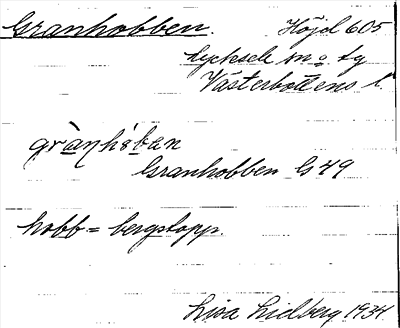 Granhobben. Höjd 605
Lycksele sn o tg
Västerbottens l.
grànhòban
Granhobben G 49
hobb = bergstopp.
Lisa Lidberg 1934